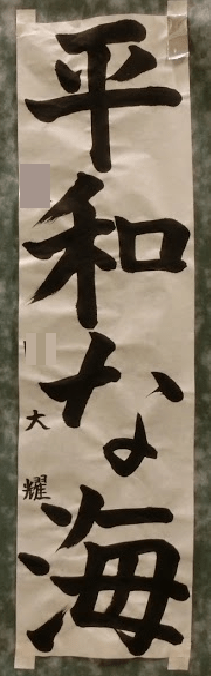 平和な海
大耀